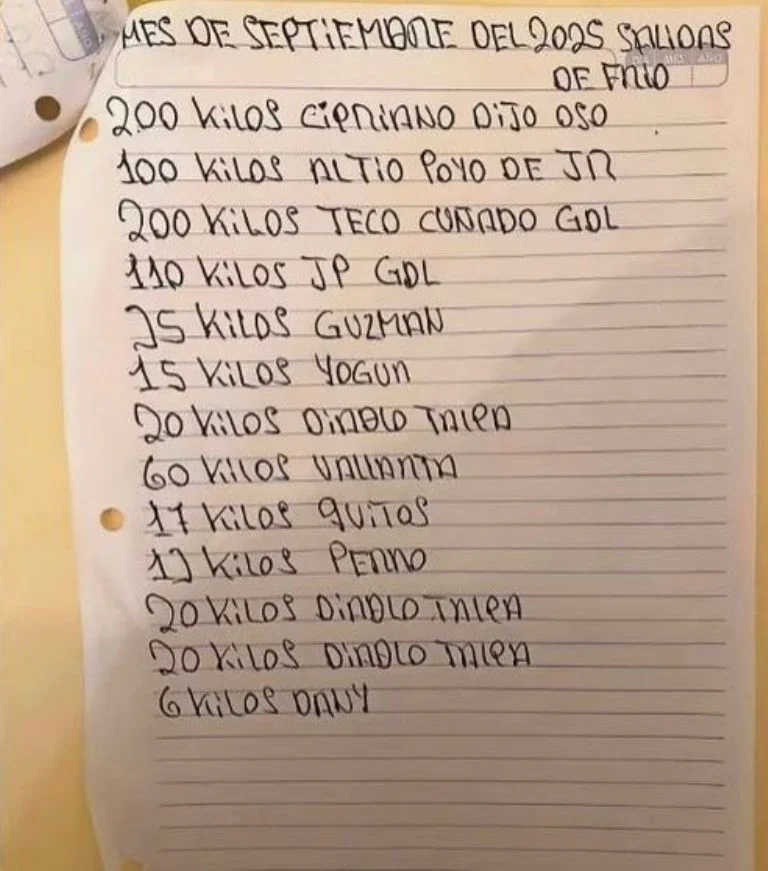 MES DE SEPTiEMBRE DEL 2025 SALIDAS
DIA MES AÑO
DE FRIO
200 KiLOS CiPRiANO DiJO OSO
100 KiLOS ALTIO POYO DE JR
200 KiLOS TECO CUÑADO GDL
110 KiLOS JP GDL
25 KiLOS GUZMAN
15 KiLOS YOGUR
20 KiLOS DiABLO TALPA
60 KiLOS VALLARTA
17 KiLOS QUiTOS
12 KiLOS PERRO
20 KiLOS DiABLO TALPA
20 KiLOS DIABLO TALPA
6 KiLOS DANY